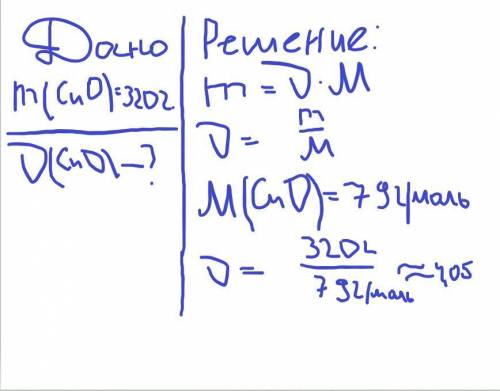 Дано
m(CuO)=320г
ν(CuO)–?
Решение:
m = ν·M
ν = m/M
M(CuO)=79г/моль
ν = 320г/79г/моль ≈4,05